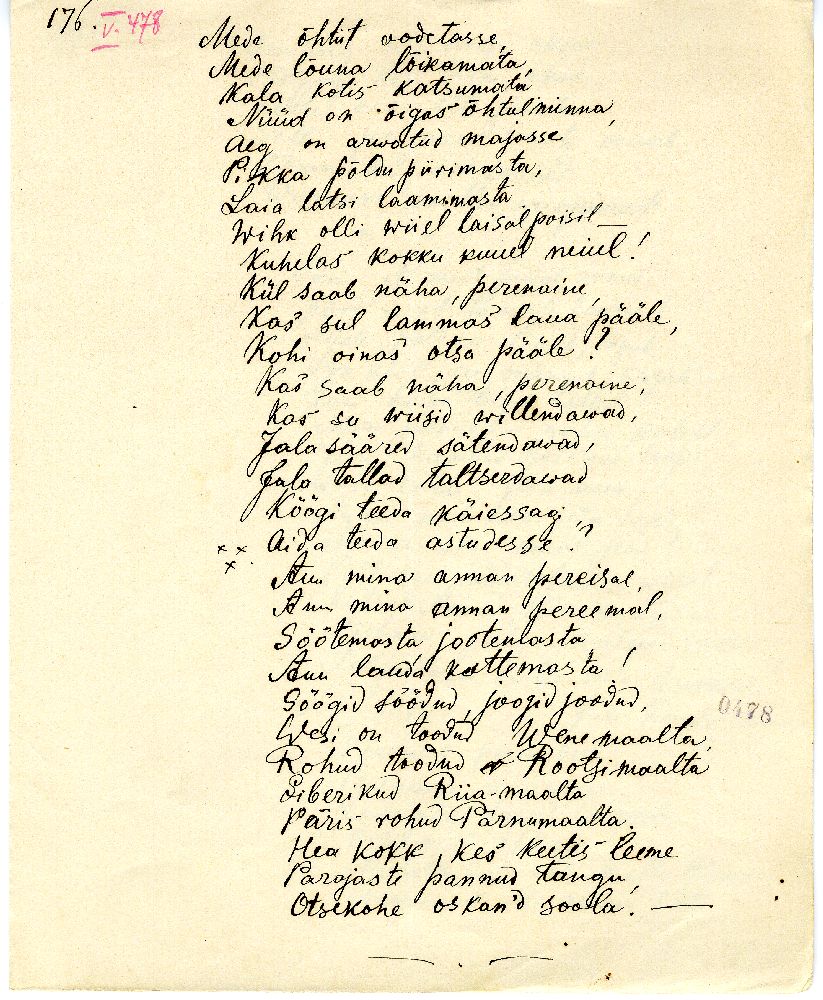 176. V. 478
Mede õhtut oodetasse,
Mede lõuna lõikamata,
Kala kotis katsumata,
Nüüd on õigas õhtul minna,
Aeg on arwatud majasse
Pikka põldu piirimasta,
Laia latsi laamimasta
Wihk olli wiiel laisal poisil —
Kuhelas kokku kuuel neiul!
Kül saab näha, perenaine,
Kas sul lammas laua pääle,
Kohi oinas otsa pääle?
Kas saab näha, perenaine,
Kas su wiisid willendawad,
Jala sääred sätendawad,
Jala tallad taltserdawad
Köögi teeda käiessagi,
Aida teeda astudesse?
x x x
Auu mina annan pereisal,
Auu mina annan pereemal,
Söötemasta jootemasta
Auu lauda kattemasta!
Söögid söödud, joogid joodud,
Wesi on toodud Wenemaalta,
Rohud toodud Rootsimaalta
Siberikud Riia-maalta
Päris rohud Pärnumaalta.
Hea kokk, kes keetis leeme
Parajaste pannud tangu,
Otsekohe oskan'd soola. —
0478